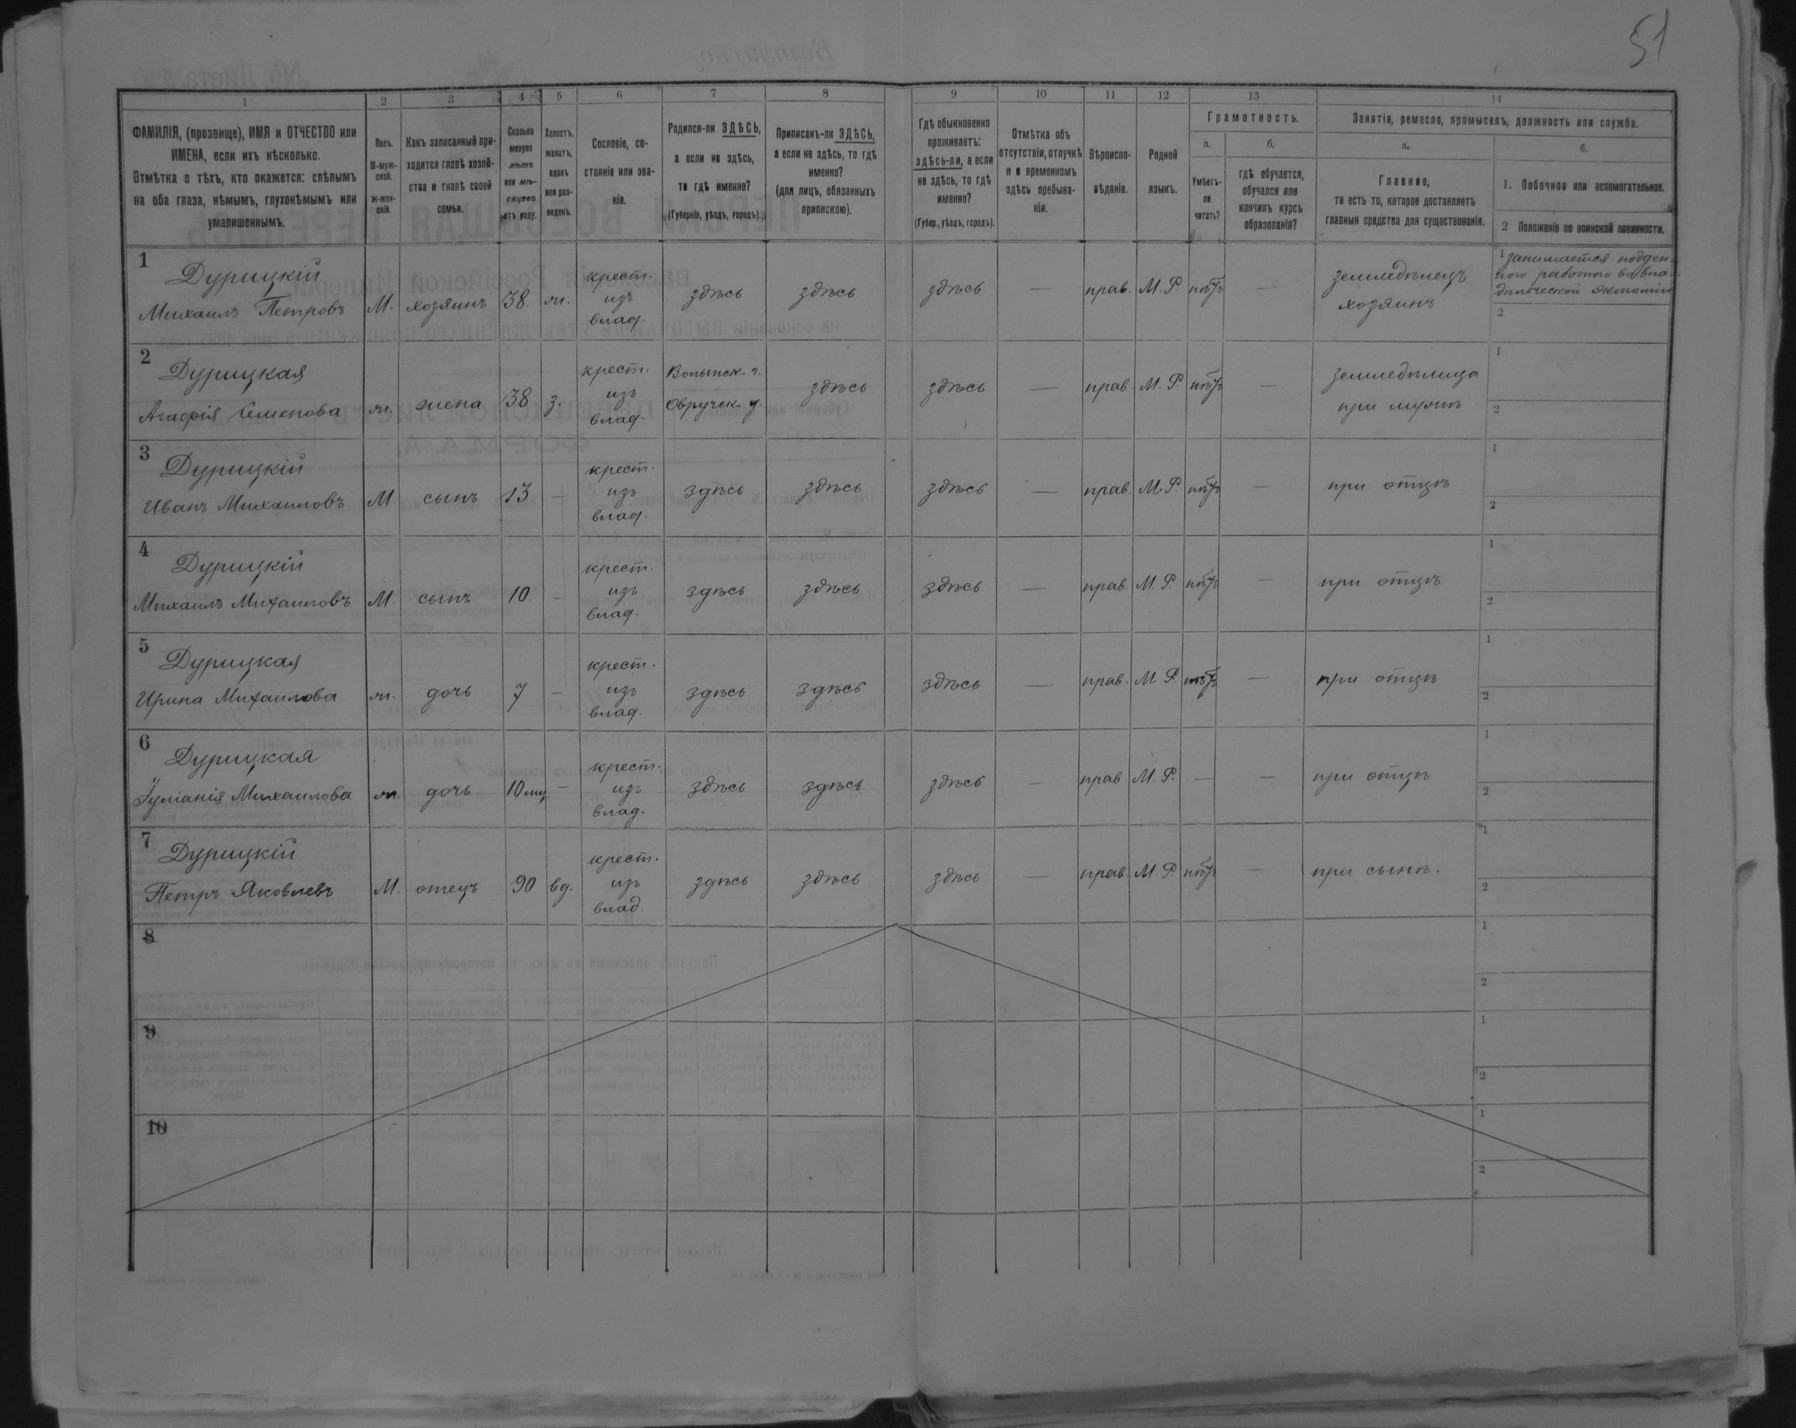 51
1 2 3 4 5 6 7 8 9 10 11 12 13 14
ФАМИЛІЯ, (прозвище), ИМЯ и ОТЧЕСТВО или
ИМЕНА, если ихъ нѣсколько.
Отмѣтка о тѣхъ, кто окажется: слѣпымъ
на оба глаза, нѣмымъ, глухонѣмымъ или
умалишеннымъ.
Полъ.
М-муж-
ской.
ж-жен-
скій.
Какъ записанный при-
ходится главѣ хозяй-
ства и главѣ своей
семьи.
Сколько
минуло
лѣтъ
или мѣ-
сяцевъ
отъ роду.
Холостъ,
женатъ,
вдовъ
или раз-
веденъ.
Сословіе, со-
стояніе или зва-
ніе.
Родился-ли ЗДѢСЬ,
а если не здѣсь,
то гдѣ именно?
(Губернія, уѣздъ, городъ).
Приписанъ-ли ЗДѢСЬ,
а если не здѣсь, то гдѣ
именно?
(для лицъ, обязанныхъ
припискою).
Гдѣ обыкновенно
проживаетъ:
здѣсь-ли, а если
не здѣсь, то гдѣ
именно?
(Губер., уѣздъ, городъ).
Отмѣтка объ
отсутствіи, отлучкѣ
и о временномъ
здѣсь пребыва-
ніи.
Вѣроиспо-
вѣданіе.
Родной
языкъ.
Грамотность.
а.
Умѣетъ-
ли
читать?
б.
гдѣ обучается,
обучался или
кончилъ курсъ
образованія?
Занятіе, ремесло, промыселъ, должность или служба.
а.
Главное,
то есть то, которое доставляетъ
главныя средства для существованія.
б.
1. Побочное или вспомогательное.
2 Положеніе по воинской повинности.
1 Дурицкій
Михаилъ Петровъ М. хозяинъ 38. ж. крест. изъ влад. здѣсь здѣсь здѣсь — прав. М.Р. нѣтъ — земледѣлецъ хозяинъ
1 занимается поден-
2
2 Дурицкая
Агафія Семенова ж. жена 38 з. крест. изъ влад. Волынск. г. Овручск. у. здѣсь здѣсь — прав. М.Р. нѣтъ — земледѣлица при мужѣ
1
2
3 Дурицкій
Иванъ Михаиловъ М сынъ 13 — крест. изъ влад. здѣсь здѣсь здѣсь — прав. М.Р. нѣтъ — при отцѣ
1
2
4 Дурицкій
Михаилъ Михаиловъ М. сынъ 10 — крест. изъ влад. здѣсь здѣсь здѣсь — прав. М.Р. нѣтъ — при отцѣ
1
2
5 Дурицкая
Ирина Михаилова ж. дочь 7 — крест. изъ влад. здѣсь здѣсь здѣсь — прав. М.Р. нѣтъ — при отцѣ
1
2
6 Дурицкая
Іуліанія Михаилова ж. дочь 10 мц — крест. изъ влад. здѣсь здѣсь здѣсь — прав. М.Р. — — при отцѣ
1
2
7 Дурицкій
Петръ Яковлевъ М. отецъ 90 вд. крест. изъ влад. здѣсь здѣсь здѣсь — прав. М.Р. нѣтъ — при сынѣ.
1
2
8
1
2
9
1
2
10
1
2